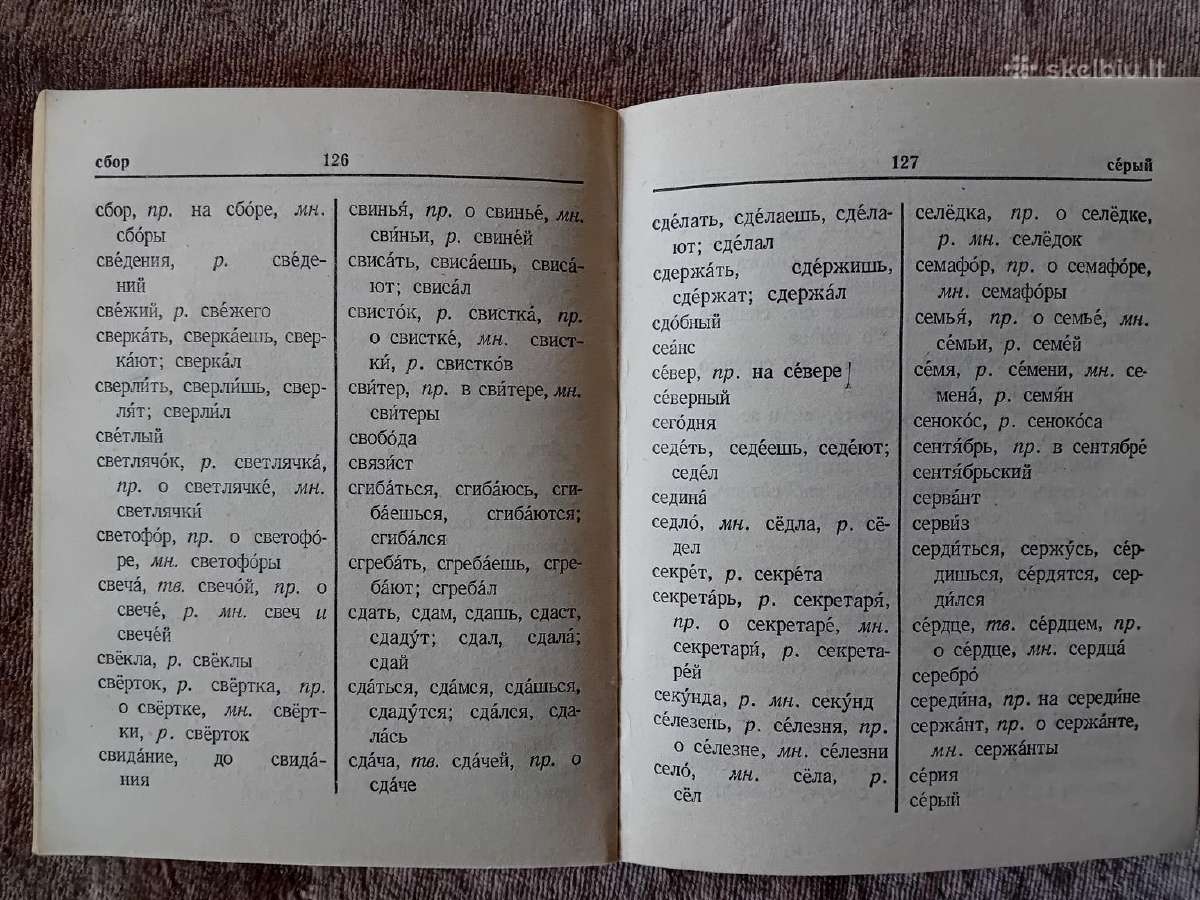 skelbiu.lt
сбор 126
сбор, пр. на сбо́ре, мн.
сбо́ры
све́дения, р. све́де-
ний
све́жий, р. све́жего
сверка́ть, сверка́ешь, свер-
ка́ют; сверка́л
сверли́ть, сверли́шь, свер-
ля́т; сверли́л
све́тлый
светлячо́к, р. светлячка́,
пр. о светлячке́, мн.
светлячки́
светофо́р, пр. о светофо́-
ре, мн. светофо́ры
свеча́, тв. свечо́й, пр. о
свече́, р. мн. свеч и
свече́й
свёкла, р. свёклы
свёрток, р. свёртка, пр.
о свёртке, мн. свёрт-
ки, р. свёрток
свида́ние, до свида́-
ния
свинья́, пр. о свинье́, мн.
сви́ньи, р. свине́й
свиса́ть, свиса́ешь, свиса́-
ют; свиса́л
свисто́к, р. свистка́, пр.
о свистке́, мн. свист-
ки́, р. свистко́в
сви́тер, пр. в сви́тере, мн.
сви́теры
свобо́да
связи́ст
сгиба́ться, сгиба́юсь, сги-
ба́ешься, сгиба́ются;
сгиба́лся
сгреба́ть, сгреба́ешь, сгре-
ба́ют; сгреба́л
сдать, сдам, сдашь, сдаст,
сдаду́т; сдал, сдала́;
сдай
сда́ться, сда́мся, сда́шься,
сдаду́тся; сда́лся, сда-
ла́сь
сда́ча, тв. сда́чей, пр. о
сда́че
127 се́рый
сде́лать, сде́лаешь, сде́ла-
ют; сде́лал
сдержа́ть, сде́ржишь,
сде́ржат; сдержа́л
сдо́бный
сеа́нс
се́вер, пр. на се́вере
се́верный
сего́дня
седе́ть, седе́ешь, седе́ют;
седе́л
седина́
седло́, мн. сёдла, р. сё-
дел
секре́т, р. секре́та
секрета́рь, р. секретаря́,
пр. о секретаре́, мн.
секретари́, р. секрета-
ре́й
секу́нда, р. мн. секу́нд
се́лезень, р. се́лезня, пр.
о се́лезне, мн. се́лезни
село́, мн. сёла, р.
сёл
селёдка, пр. о селёдке,
р. мн. селёдок
семафо́р, пр. о семафо́ре,
мн. семафо́ры
семья́, пр. о семье́, мн.
се́мьи, р. семе́й
се́мя, р. се́мени, мн. се-
мена́, р. семя́н
сеноко́с, р. сеноко́са
сентя́брь, пр. в сентябре́
сентя́брьский
серва́нт
серви́з
серди́ться, сержу́сь, се́р-
дишься, се́рдятся, сер-
ди́лся
се́рдце, тв. се́рдцем, пр.
о се́рдце, мн. сердца́
серебро́
середи́на, пр. на середи́не
сержа́нт, пр. о сержа́нте,
мн. сержа́нты
се́рия
се́рый